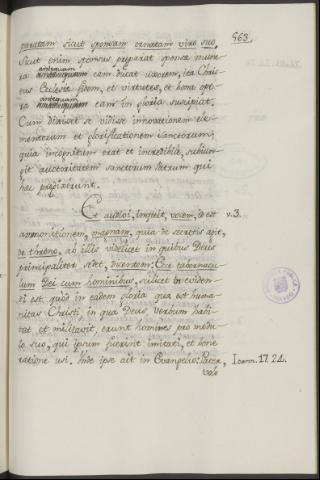 563.
paratam sicut sponsam ornatam viro suo,
Sicut enim sponsus præparat sponsæ mune-
ra antequam eam ducat uxorem, ita Chris-
tus Ecclesiæ fidem, et virtutes, et bona ope-
ra antequam eam in gloria suscipiat.
Cum dixisset se vidisse innovationem ele-
mentorum et glorificationem sanctorum,
quia incognitum erat et incredibile, subiun-
git auctoritatem sanctorum Patrum qui
hæc prædixerunt.
Et audivi, inquit, vocem, id est v. 3.
ammonitionem, magnam, quia de secretis agit,
de throno, ab illis videlicet in quibus Deus
principaliter sedet, dicentem: Ecce tabernacu-
lum Dei cum hominibus, scilicet in eviden-
ti est, quod in eadem gloria qua est huma-
nitas Christi, in qua Deus verbum habi-
tat et militavit, erunt homines pro modu-
lo suo, qui ipsum fuerint imitati, et bene
ratione usi. Unde ipse ait in Evangelio: Pater, Ioann. 17. 24.
volo